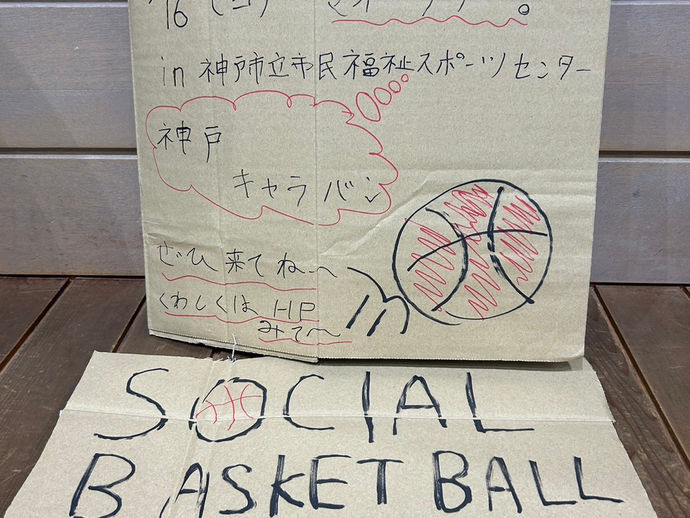 in 神戸市立市民福祉スポーツセンター
神戸
キャラバン
ぜひ来てね〜
くわしくは HP
みて〜
SOCIAL
BASKETBALL